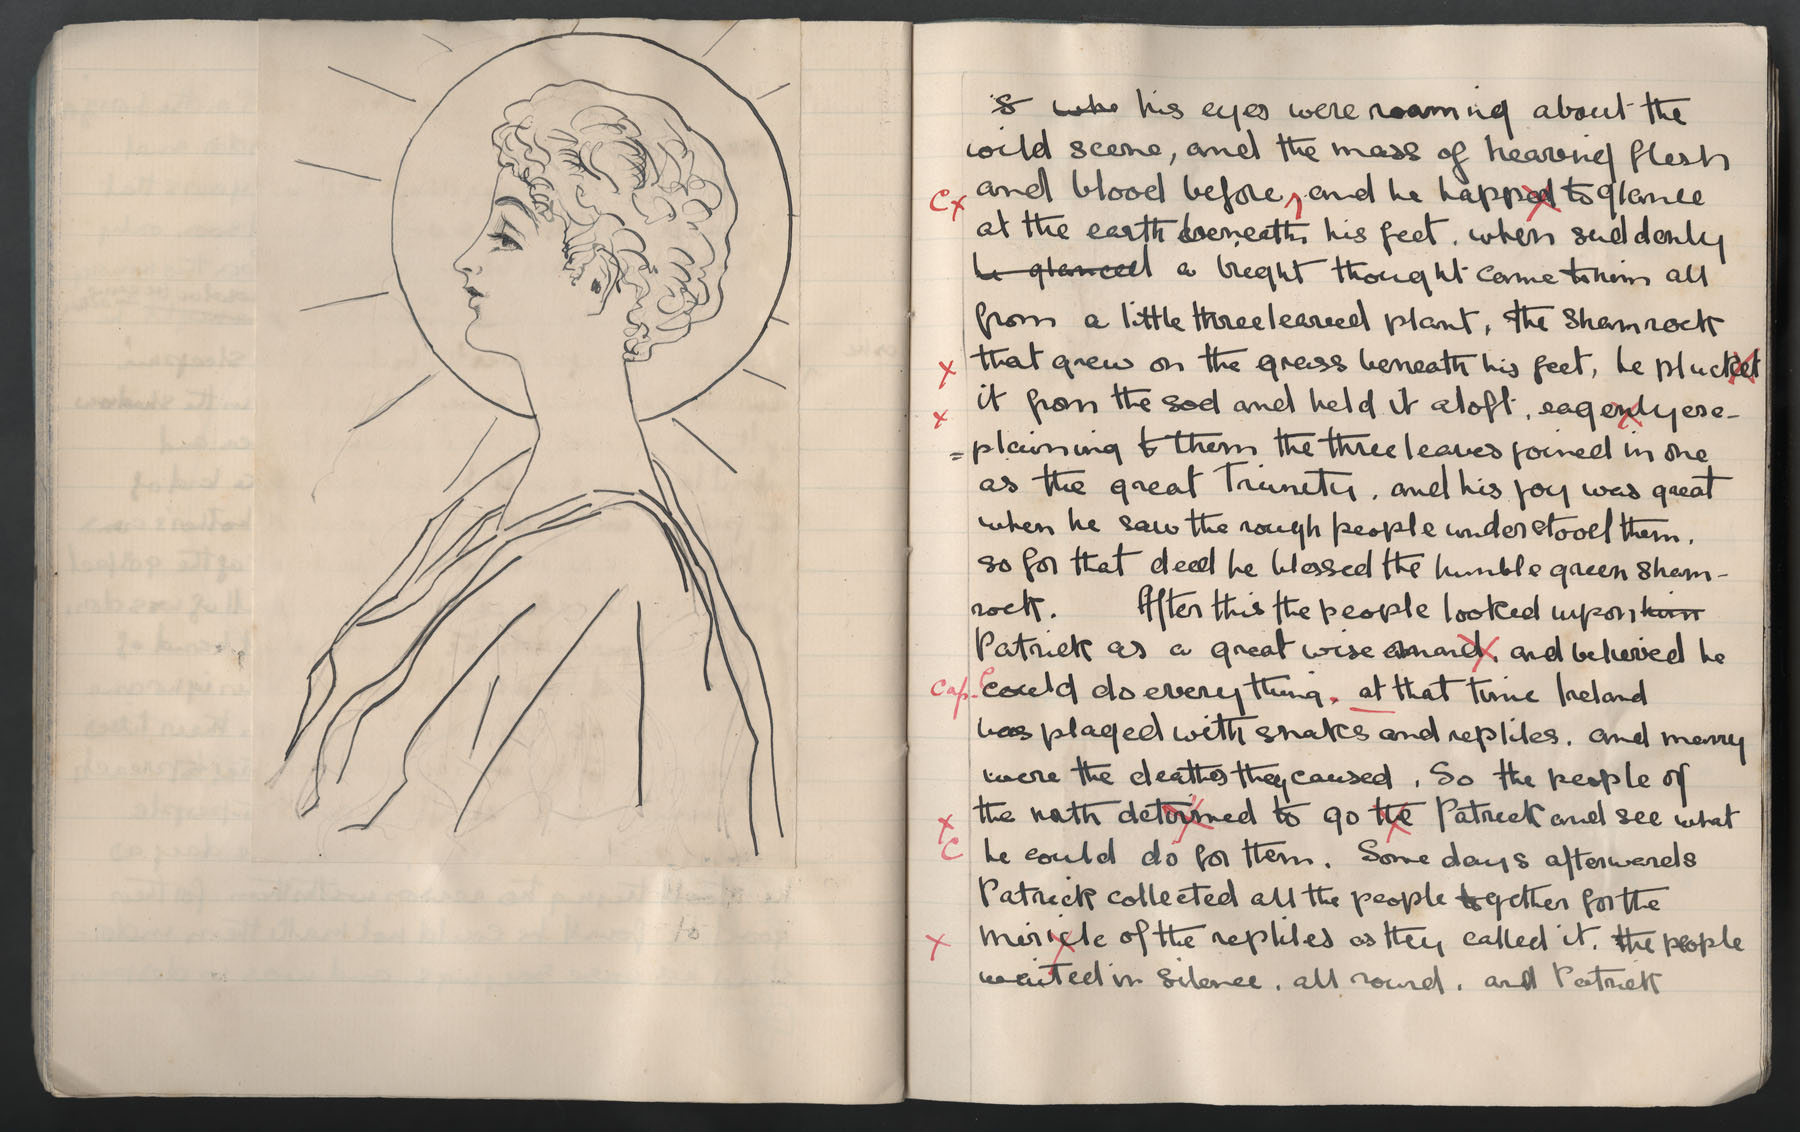 is ~~who~~ his eyes were roaming about the
wild scene, and the mass of hearing flesh
Cx and blood before, and he happed to glance
at the earth beneath his feet. when suddenly
~~he glanced~~ a bright thought came to him all
from a little threeleaved plant, the Shamrock
x that grew on the grass beneath his feet, he plucket
x it from the sod and held it aloft. eagenly exe-
=plaining to them the three leaves joined in one
as the great Trinity, and his joy was great
when he saw the rough people understood them.
so for that deed he blessed the humble green sham-
rock. After this the people looked upon ~~him~~
Patrick as a great wise mand, and believed he
cap. could do everything. at that time Ireland
was plaged with snakes and reptiles. and many
were the deaths they caused. So the people of
x the north detormed to go the Patrick and see what
C he could do for them. Some days afterwards
Patrick collected all the people together for the
x miricle of the reptiles as they called it. the people
waited in silence. all round. and Patrick